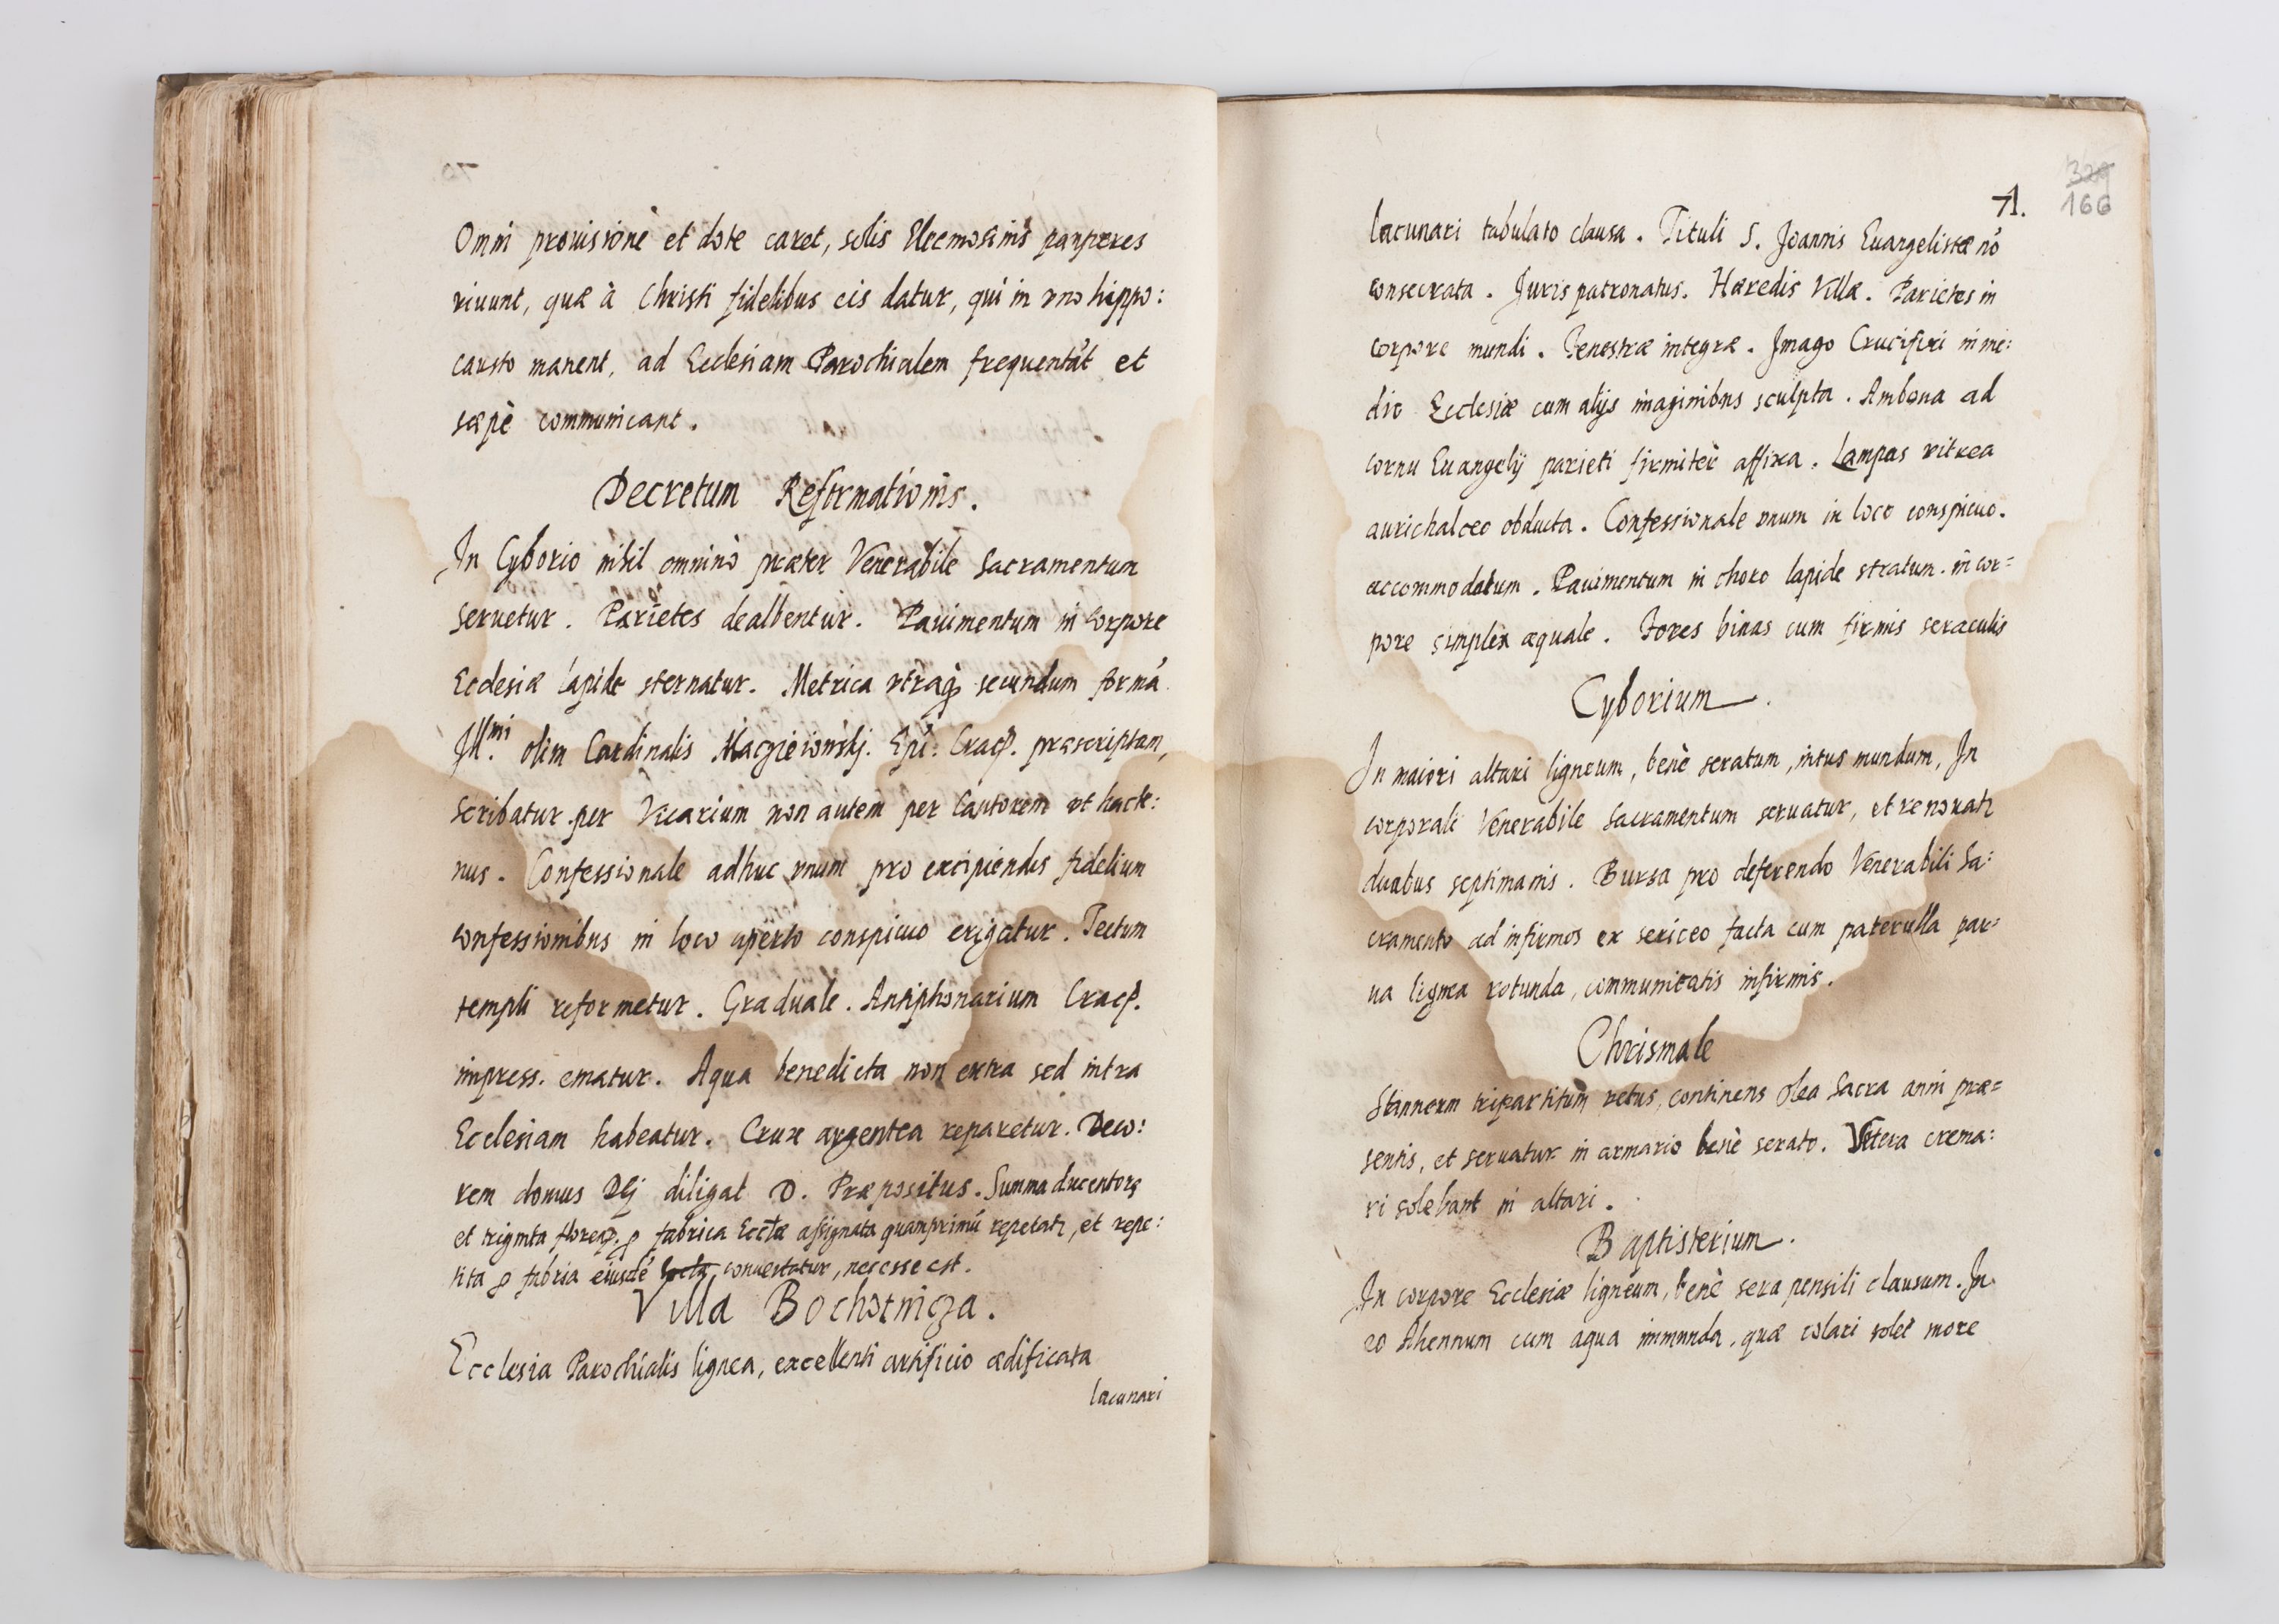 Omni prouisionè et dote caret, solis Elecmosinis pauperes
viuunt, quæ à Christi fidelibus eis datur, qui in vno hippo:
causto manent, ad Ecclesiam Parochialem frequentāt et
sæpè communicant.
Decretum Reformationis.
In Cyborio nihil omninò præter Venerabile Sacramentum
seruetur. Parietes dealbentur. Pauimentum in corpore
Ecclesiæ lapide sternatur. Metrica vtraq; secundum formā
Illmi. olim Cardinalis Maczieiowskj. Epi: Crac. præscriptam,
scribatur per Vicarium non autem per Cantorem vt hacte:
nus. Confessionale adhuc vnum pro excipiendis fidelium
confessionibus in loco aperto conspicuo erigatur. Tectum
templi reformetur. Graduale. Antiphonarium Crac.
impress. ematur. Aqua benedicta non extra sed intra
Ecclesiam habeatur. Crux argentea reparetur. Deco:
rem domus Dej diligat D. Præpositus. Summa ducentorƺ
et triginta floreaƺ. ꝑ fabrica Eccłæ assignata quamprimū repetati, et repe:
tita ꝑ fabria eiusdē conuertatur, necesse est.
Villa Bochotnicza.
Ecclesia Parochialis lignea, excellenti artificio ædificata
lacunari
329
71.
166
lacunari tabulato clausa. Tituli S. Joannis Euangelistæ nō
consecrata. Juris patronatus. Hæredis Villæ. Parietes in
corpore mundi. Fenestræ integræ. Jmago Crucifixi in me:
dio Ecclesiæ cum alijs imaginibus sculpta. Ambona ad
cornu Euangelij parieti firmitèr affixa. Lampas vitrea
aurichalceo obducta. Confessionale vnum in loco conspicuo.
accommodatum. Pauimentum in choro lapide stratum. in cor=
pore simplex æquale. Fores binas cum firmis seraculis
Cyborium.
In maiori altari ligneum, benè seratum, intus mundum, In
corporali Venerabile Sacramentum seruatur, et renouati
duabus septimanis. Bursa pro deferendo Venerabili Sa:
cramento ad infirmos ex sericeo facta cum paterulla par=
ua lignea rotunda, communicatis infirmis.
Chrismale
Stanneum tripartitum vetus, continens olea Sacra anni præ=
sentis, et seruatur in armario benè serato. Vetera crema:
ri solebant in altari.
Baptisterium.
In corpore Ecclesiæ ligneum, benè sera pensili clausum. In
eo Ahennum cum aqua immunda, quæ colari solet more